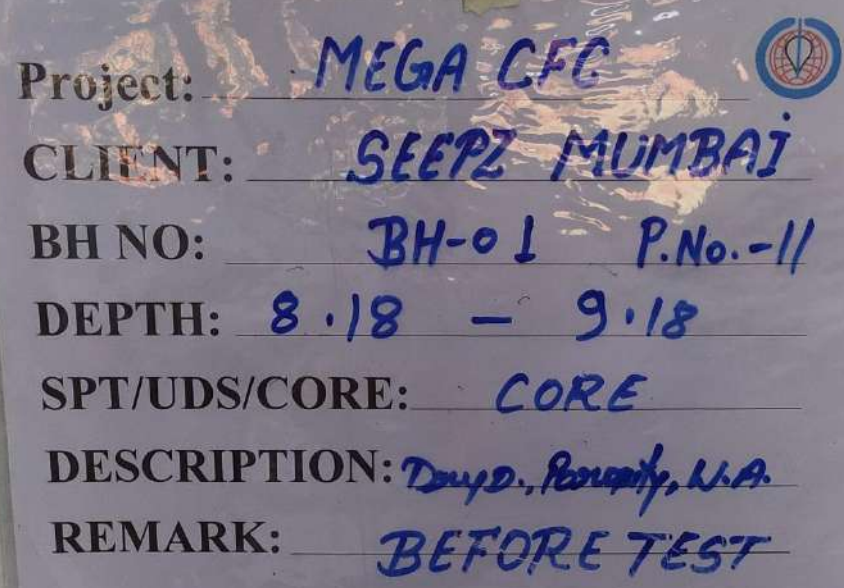 Project: MEGA CFC
CLIENT: SEEPZ MUMBAI
BH NO: BH-01 P.No.-11
DEPTH: 8.18 - 9.18
SPT/UDS/CORE: CORE
DESCRIPTION: Porosity, W.A.
REMARK: BEFORE TEST